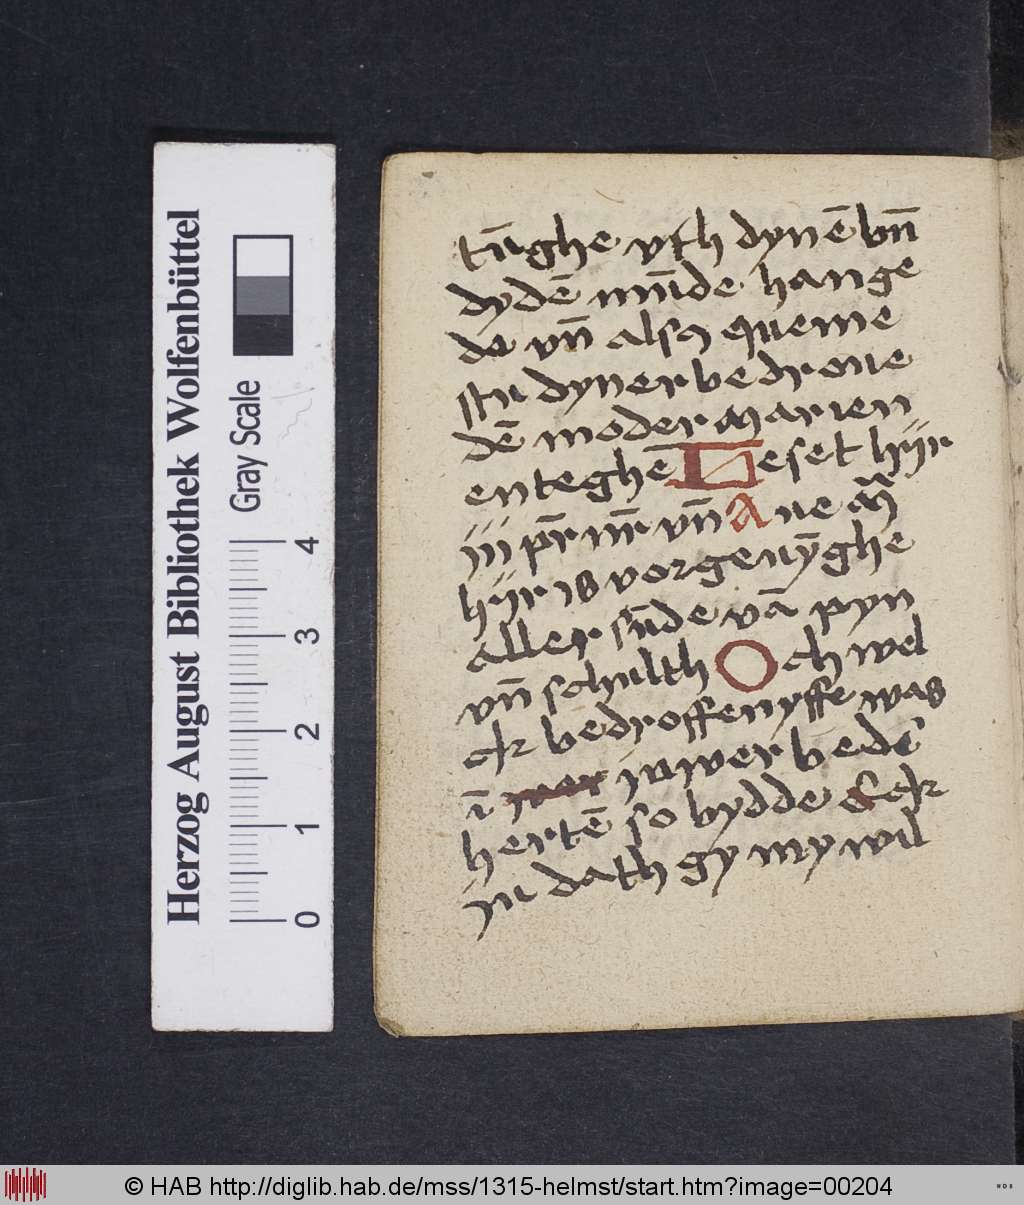 Herzog August Bibliothek Wolfenbüttel
Gray Scale
0 1 2 3 4
tūghe vth dynē bn̄
dydē mūde hange
de vn̄ also queme
stu dyner bedroue
dē moder marien
enteghē Leset hijr
iij pr̄ nr̄ vn̄ Aue m̄
hijr is vorgenȳghe
aller sūde vā pyn
vn̄ schulth Och wel
ok bedroffenysse was
ī iuwer bedē
hertē so bydde Eck
iu dath gy my wil
© HAB http://diglib.hab.de/mss/1315-helmst/start.htm?image=00204